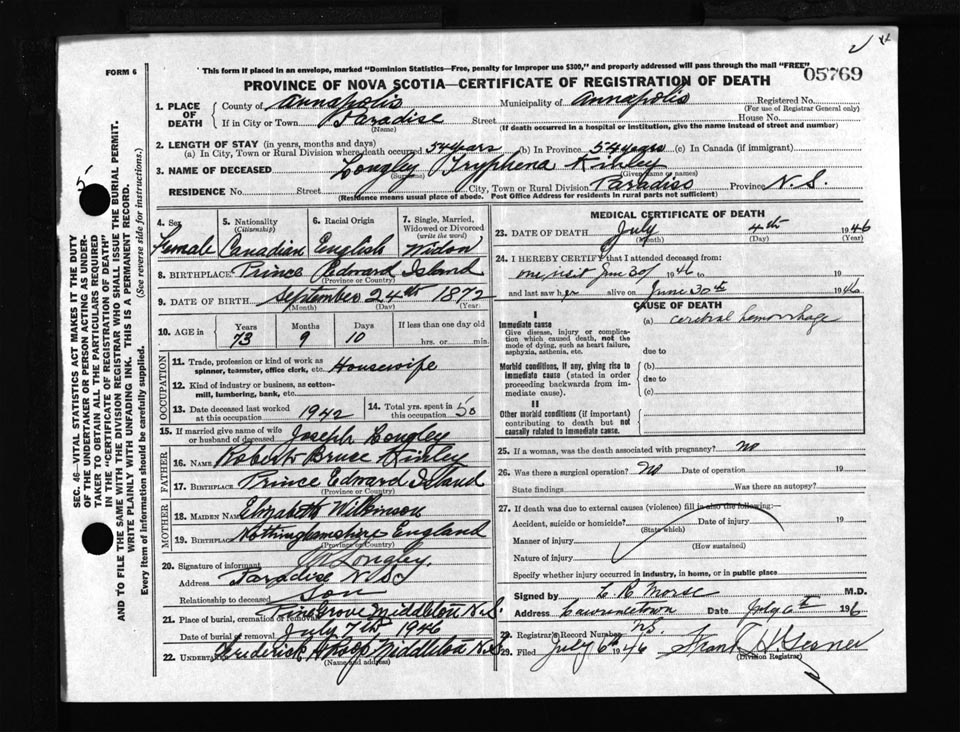 FORM 6
This form if placed in an envelope, marked "Dominion Statistics—Free, penalty for improper use $300," and properly addressed will pass through the mail "FREE"
05769
PROVINCE OF NOVA SCOTIA—CERTIFICATE OF REGISTRATION OF DEATH
SEC. 46—VITAL STATISTICS ACT MAKES IT THE DUTY
OF THE UNDERTAKER OR PERSON ACTING AS UNDER-
TAKER TO OBTAIN ALL THE PARTICULARS REQUIRED
IN THE "CERTIFICATE OF REGISTRATION OF DEATH"
AND TO FILE THE SAME WITH THE DIVISION REGISTRAR WHO SHALL ISSUE THE BURIAL PERMIT.
WRITE PLAINLY WITH UNFADING INK. THIS IS A PERMANENT RECORD.
Every item of information should be carefully supplied. (See reverse side for instructions.)
1. PLACE OF DEATH County of Annapolis Municipality of Annapolis Registered No.
(For use of Registrar General only)
If in City or Town Paradise Street House No.
(Name) (If death occurred in a hospital or institution, give the name instead of street and number)
2. LENGTH OF STAY (in years, months and days)
(a) In City, Town or Rural Division where death occurred 54 years (b) In Province 54 years (c) In Canada (if immigrant)
3. NAME OF DECEASED Longley Tryphena Kinley
(Surname) (Given name or names)
RESIDENCE No. Street City, Town or Rural Division Paradise Province N.S.
(Residence means usual place of abode. Post Office Address for residents in rural parts not sufficient)
4. Sex 5. Nationality (Citizenship) 6. Racial Origin 7. Single, Married, Widowed or Divorced (write the word)
Female Canadian English Widow
8. BIRTHPLACE Prince Edward Island
(Province or Country)
9. DATE OF BIRTH September 24th 1872
(Month) (Day) (Year)
10. AGE in Years Months Days If less than one day old
73 9 10 hrs. or min.
OCCUPATION
11. Trade, profession or kind of work as
spinner, teamster, office clerk, etc. Housewife
12. Kind of industry or business, as cotton-
mill, lumbering, bank, etc.
13. Date deceased last worked at this occupation 1942 14. Total yrs. spent in this occupation 50
15. If married give name of wife or husband of deceased Joseph Longley
FATHER
16. NAME Robert Bruce Kinley
17. BIRTHPLACE Prince Edward Island
(Province or Country)
MOTHER
18. MAIDEN NAME Elizabeth Wilkinson
19. BIRTHPLACE Nottinghamshire England
(Province or Country)
20. Signature of informant Longley.
Address Paradise N.S.
Relationship to deceased Son
21. Place of burial, cremation or removal Pine Grove Middleton N.S.
Date of burial or removal July 7th 1946
22. UNDERTAKER Frederick Middleton N.S.
(Name and address)
MEDICAL CERTIFICATE OF DEATH
23. DATE OF DEATH July 4th 1946
(Month) (Day) (Year)
24. I HEREBY CERTIFY that I attended deceased from:
one visit June 30/ 1946 to 19
and last saw her alive on June 30th 1946
CAUSE OF DEATH
I
Immediate cause (a) cerebral hemorrhage
Give disease, injury or complica-
tion which caused death, not the
mode of dying, such as heart failure,
asphyxia, asthenia, etc. due to
Morbid conditions, if any, giving rise to (b)
immediate cause (stated in order due to
proceeding backwards from im-
mediate cause). (c)
II
Other morbid conditions (if important)
contributing to death but not
causally related to immediate cause.
25. If a woman, was the death associated with pregnancy? no
26. Was there a surgical operation? No Date of operation 19
State findings Was there an autopsy?
27. If death was due to external causes (violence) fill in also the following:—
Accident, suicide or homicide? Date of injury 19
(State which)
Manner of injury
(How sustained)
Nature of injury
Specify whether injury occurred in industry, in home, or in public place
Signed by L. R. Morse M.D.
Address Lawrencetown N.S. Date July 6th 1946
28. Registrar's Record Number
29. Filed July 6 1946 Frank H. Gesner
(Division Registrar)